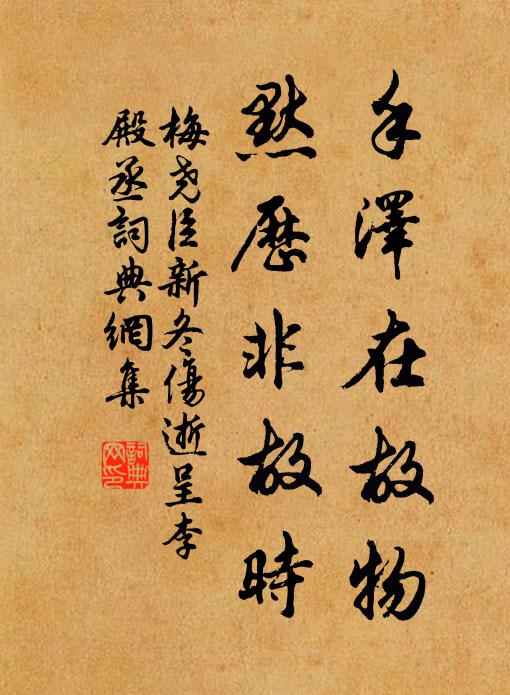 手澤在故物
點歷非故時
梅堯臣新冬傷逝呈李
殿丞詞典網集
詞典
網印